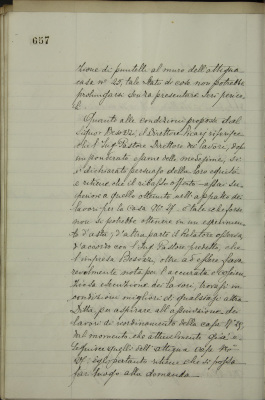 657
zione di puntelli al muro dell'attigua
casa n° 25, tale stato di cose non potrebbe
prolungarsi senza presentare seri perico
li.
Quanto alle condizioni proposte dal
Signor Bosisio, il Direttore riferisce
che l'Ing. Pastore Direttore dei lavori, dopo
ponderato esame delle medesime, si
è dichiarato persuaso della loro equità
e ritiene che il ribasso offerto
a quello ottenuto nell'appalto dei
lavori per la casa N° 27. e tale
non si potrebbe ottenere in un esperimento
d'asta; d'altra parte il Relatore osserva
d'accordo con l'Ing. Pastore predetto, che
l'impresa Bosisio, oltre ad essere favo
revolmente nota per l'accurata
esecuzione dei lavori, trovasi in
condizioni migliori di qualsiasi altra
Ditta per aspirare all'assunzione dei
lavori di riordinamento della casa N° 25,
dal momento che attualmente
quelli dell'attigua casa N°
27. egli pertanto ritiene che si possa
far luogo alla domanda